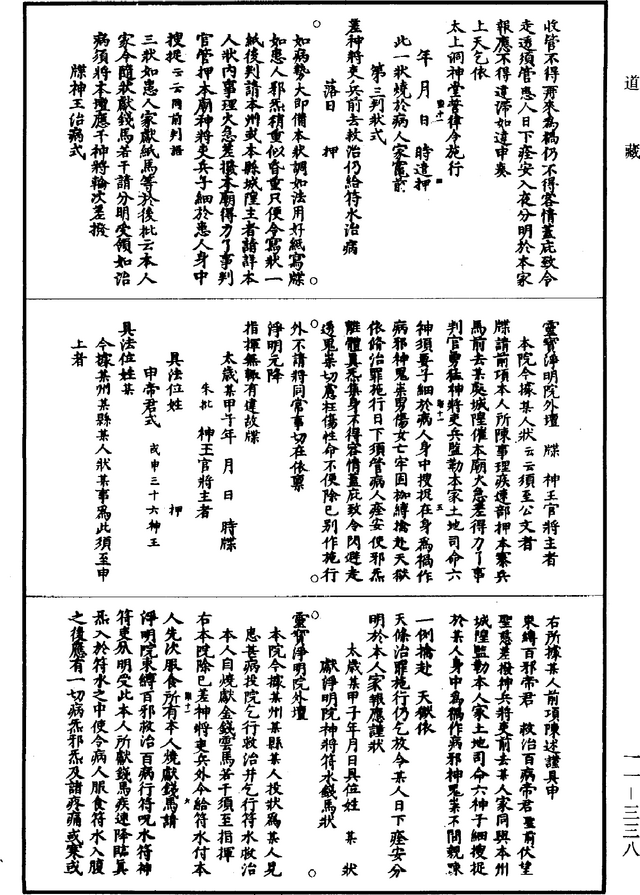 道藏
收管不得再來為禍仍不得容情蓋庇致令
走透須管患人日下痊安入夜分明於本家
報應不得違滯如違申奏
上天乞依
太上洞神堂誓律令施行
年 月 日 時遣押
此一狀燒於病人家竈前
第三判狀式
差神將吏兵前去救治仍給符水治病
落日 押
如病勢大即備本狀調如法用好紙寫牒
如患人邪炁稍重似昏重只便令寫狀一
紙後判請本州或本縣城隍主者請詳本
人狀內事理火急差撥本廟得力了事判
官管押本廟神將吏兵子細於患人身中
搜捉云云同前判語
三狀如患人家獻紙馬等於後批云本人
家令隨狀獻錢馬若干請分明受領如治
病須將本壇應干神將輪次差撥
牒神王治病式
靈寶淨明院外壇 牒 神王官將主者
本院今據某人狀云云須至公文者
牒請前項本人所陳事理疾速部押本寨兵
馬前去某處城隍催本廟火急差得力了事
判官勇猛神將吏兵監勒本家土地司命六
神須要子細於病人身中搜捉在身為禍作
病邪神鬼祟男傷女亡牢固枷縛擒赴天獄
依條治罪施行日下須管病人痊安使邪炁
離體真炁集身不得容情蓋庇致令閃避走
透鬼祟切慮枉傷性命不便除已別作施行
外不請將同常事切在依稟
淨明元降
指揮無輒有違故牒
太歲某甲子年 月 日 時牒
朱批 神王官將主者
具法位姓 押
申帝君式 或申三十六神王
具法位姓某
今據某州某縣某人狀某事為此須至申
上者
右所據某人前項陳述謹具申
束縛百邪帝君 救治百病帝君聖前伏望
聖慈差撥神兵將吏前去某人家同與本州
城隍監勒本家土地司命六神子細搜捉
於某人身中為禍作病邪神鬼祟不問親疎
一例擒赴 天獄依
天條治罪施行仍乞放令某人日下痊安分
明於本人家報應謹狀
太歲某甲子年月日具位姓 某 狀
獻淨明院神將符水錢馬狀
靈寶淨明院外壇
本院今據某州某縣某人投狀為某人見
患甚病投院乞行救治并乞行符水救治
本人自燒獻金錢雲馬若干須至指揮
右本院除已差神將吏兵外今給符水付本
人先次服食所有本人燒獻錢馬請
淨明院束縛百邪救治百病行符呪水符神
符吏分明受此本人所獻錢馬疾速降臨真
炁入於符水之中使令病人服食符水入腹
之後應有一切病炁邪炁及諸疼痛或寒或
一一—三三八